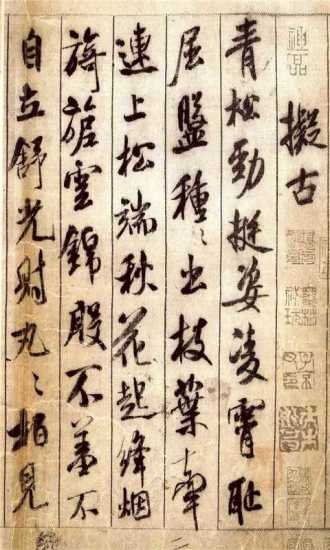 擬古
青松勁挺姿凌霄耻
屈盤種〻出枝葉牽
連上松端秋花起絳烟
旖旎雲錦殷不羞不
自立舒光射丸〻栢見